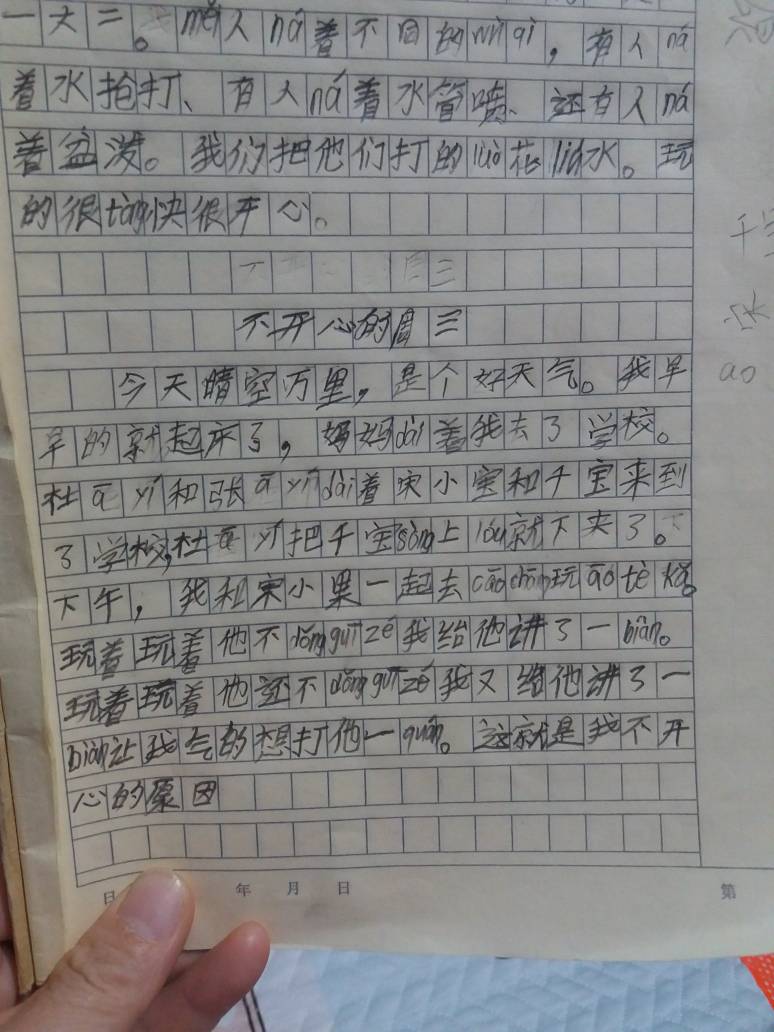 一大二。měi人ná着不同的wǔ qì，有人ná
着水抢打、有人ná着水管喷、还有人ná
着盆泼。我们把他们打的luò花liú水。玩
的很tòng快很开心。
不开心的周三
今天晴空万里，是个好天气。我早
早的就起床了，妈妈dài着我去了学校。
杜ā yí和张ā yí dài着宋小宝和千宝来到
了学校，杜ā yí把千宝sòng上lóu就下来了。
下午，我和宋小果一起去cāo chǎng玩ào tè 
玩着玩着他不dǒng guī zé我给他讲了一biàn。
玩着玩着他还不dǒng guī zé我又给他讲了一
biàn让我气的想打他一quán。这就是我不开
心的原因
日 年 月 日 第
千
ao